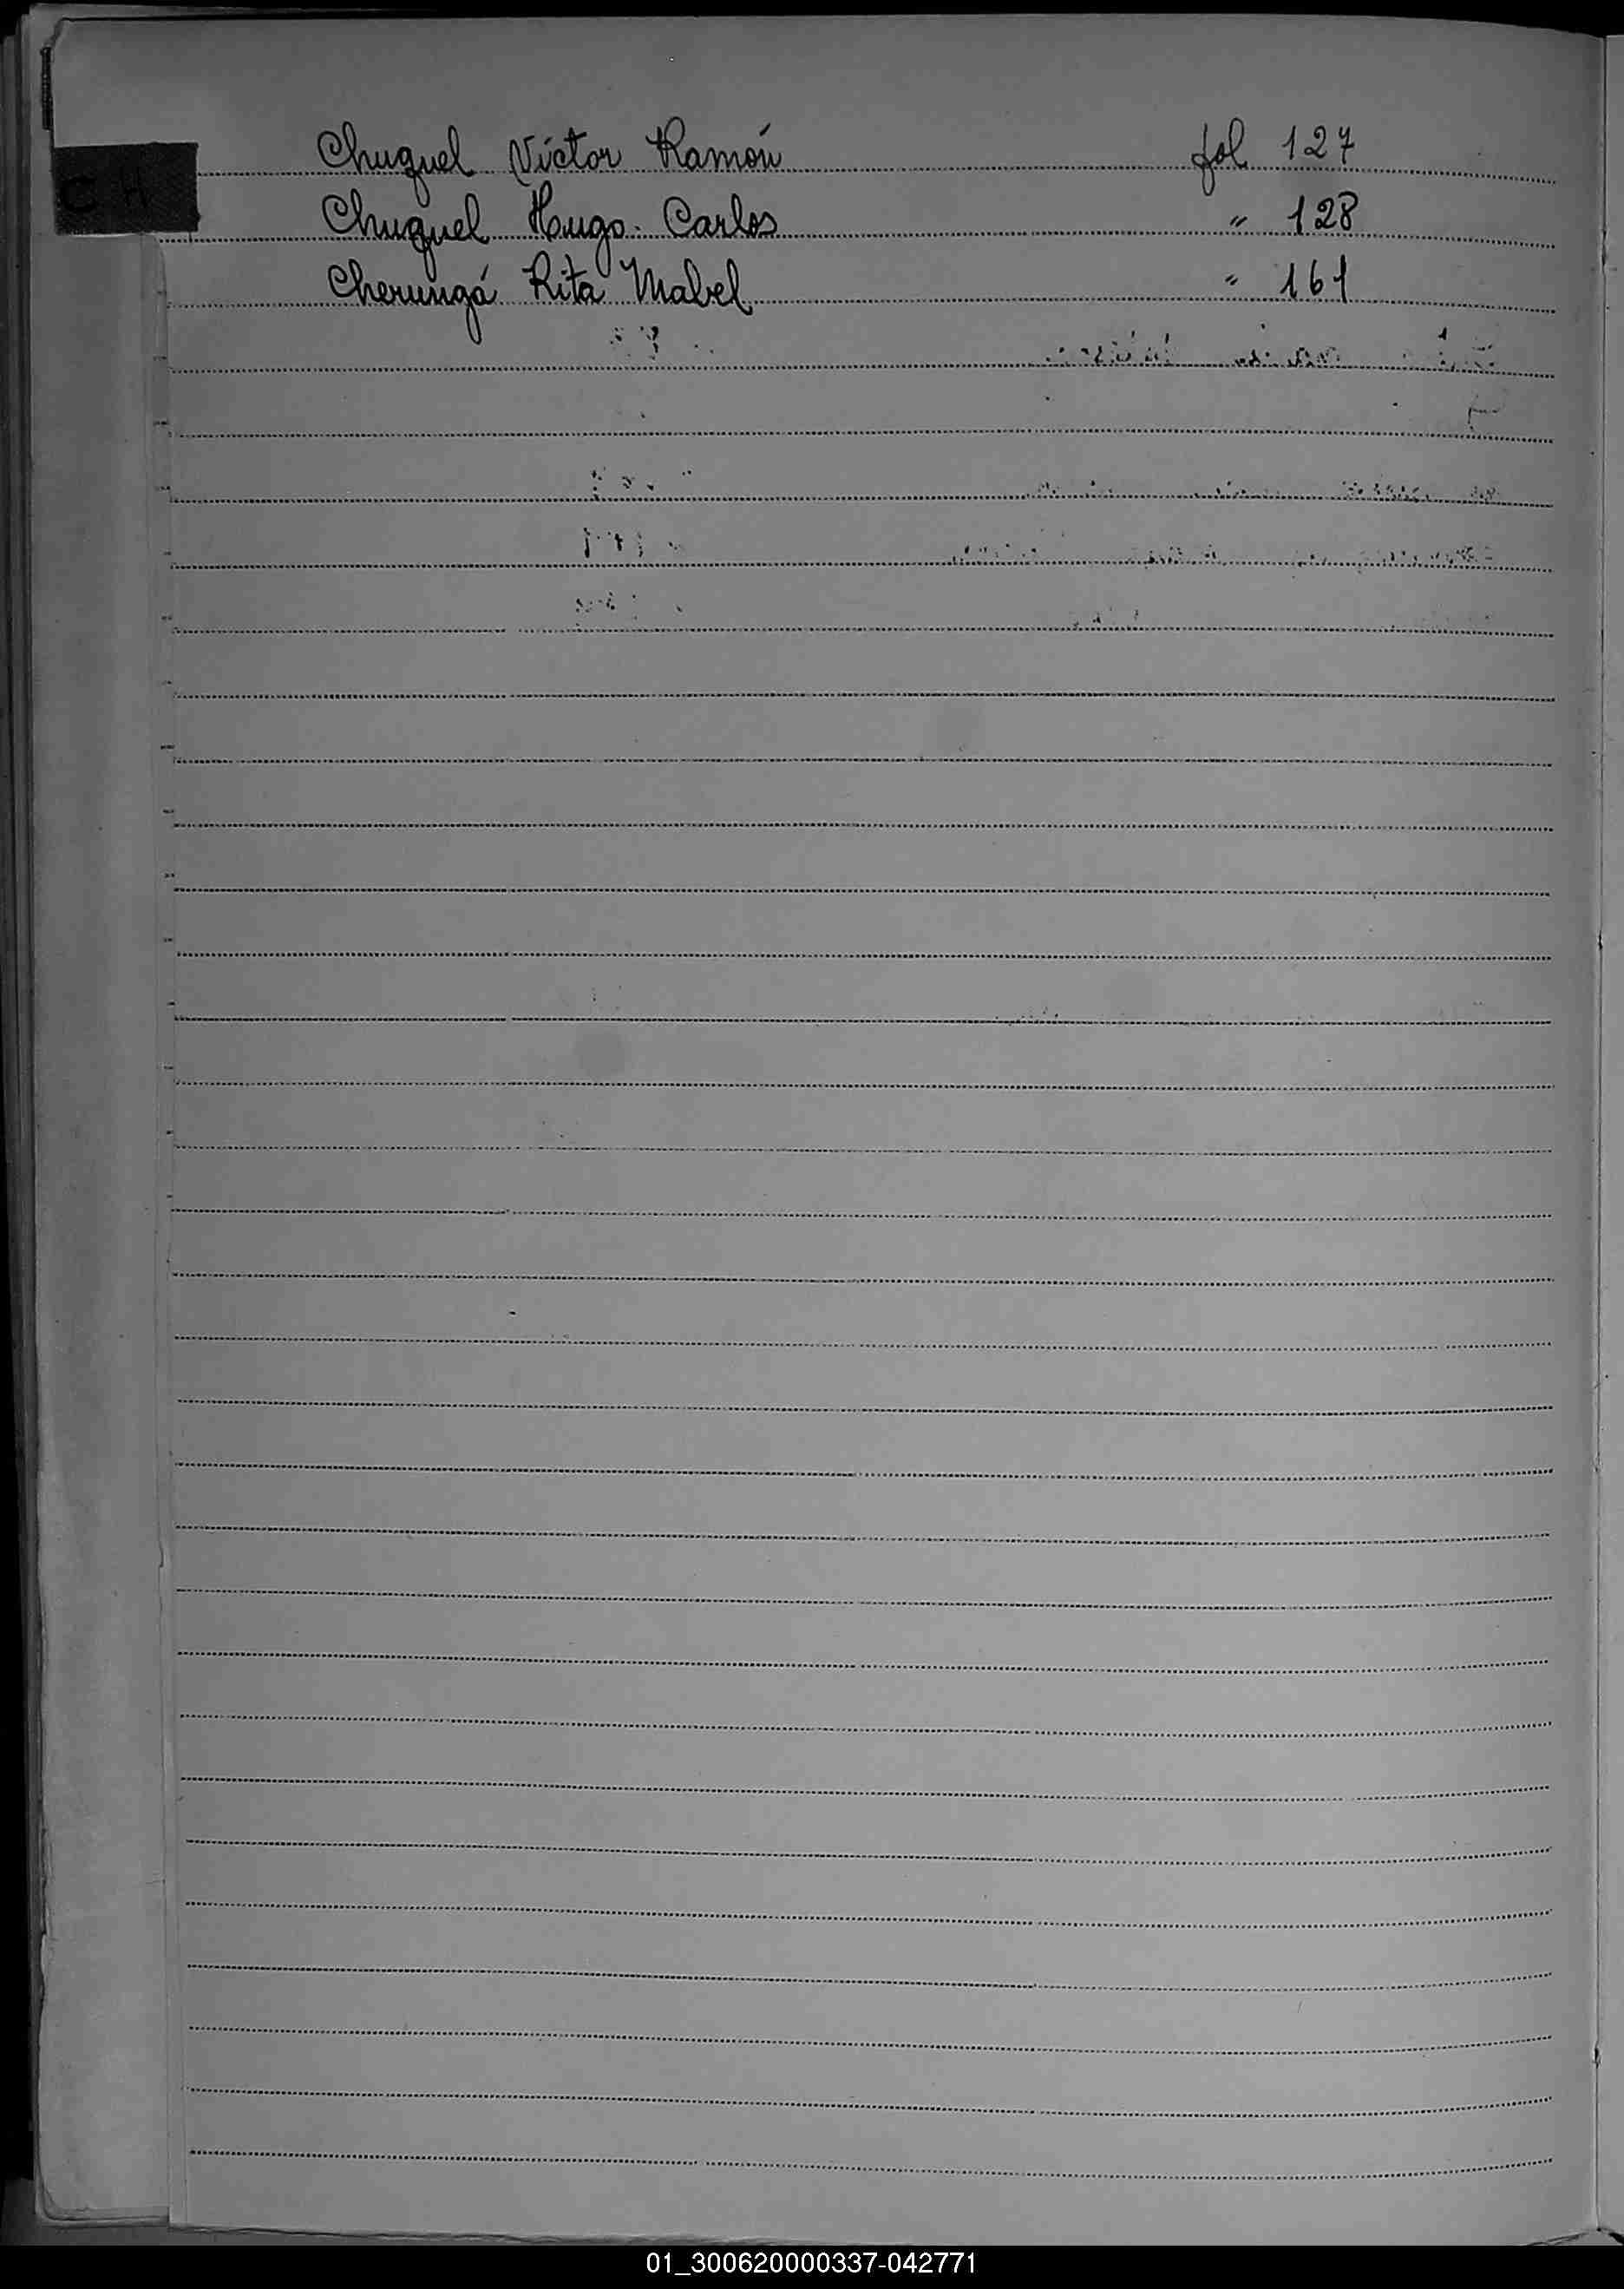 CH
Chuquel Víctor Ramón fol 127
Chuquel Hugo Carlos " 128
Cherungá Rita Mabel " 161
01_300620000337-042771